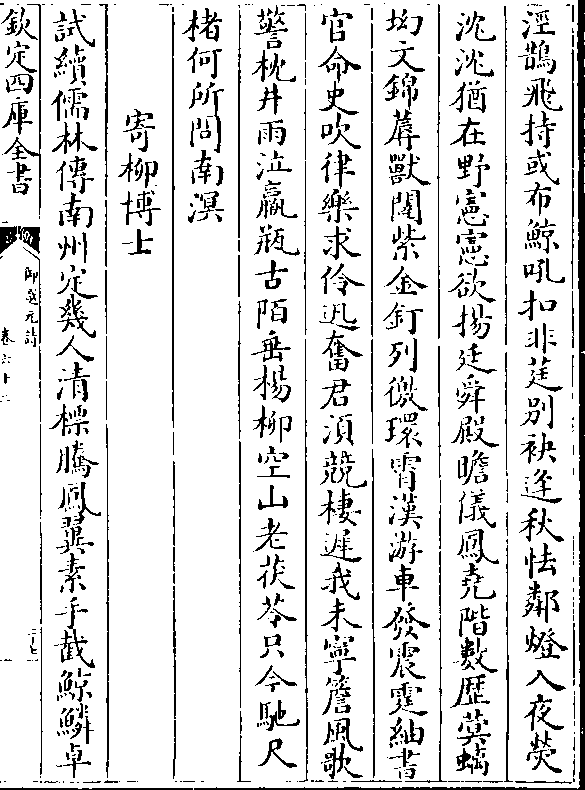 涇鵲飛持或布鯨吼扣非莛別袂逢秋怯鄰燈入夜熒
沈沈猶在野憲憲欲揚廷舜殿瞻儀鳳堯階數歴蓂螭
坳文錦蓐獸闥紫金釘列徼環霄漢游車發震霆紬書
官命史吹律樂求伶迅奮君須競棲遲我未寧簷風歌
警枕井雨泣羸瓶古陌垂楊柳空山老茯苓只今馳尺
楮何所問南溟
寄柳博士
試續儒林傳南州定幾人清標騰鳳翼素手截鯨鱗卓
欽定四庫全書
御選元詩
卷六十二